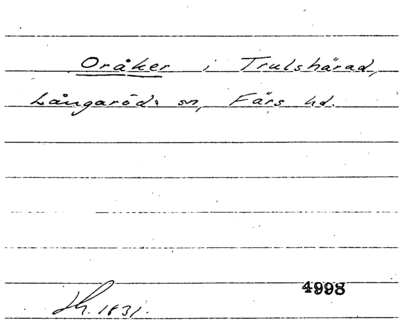 Oråker i Trulshärad,
Långaröds sn, Färs hd.
4998
Lh. 1831.